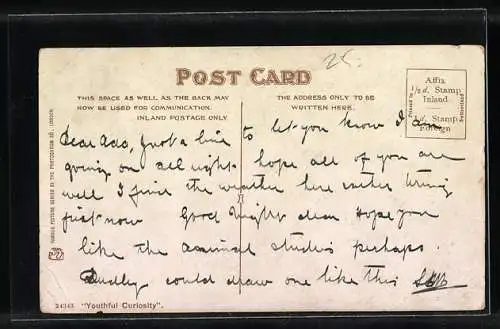 25.
POST CARD
THIS SPACE AS WELL AS THE BACK MAY
NOW BE USED FOR COMMUNICATION.
INLAND POSTAGE ONLY
THE ADDRESS ONLY TO BE
WRITTEN HERE.
Affix
½d. Stamp
Inland
1d. Stamp
Foreign
Dear Just a line to let you know I am
going on all right hope all of you are
well I find the weather here rather trying
just now Good Night dear Hope you
like the animal studies perhaps.
Dudley could draw one like this
24345 "Youthful Curiosity".